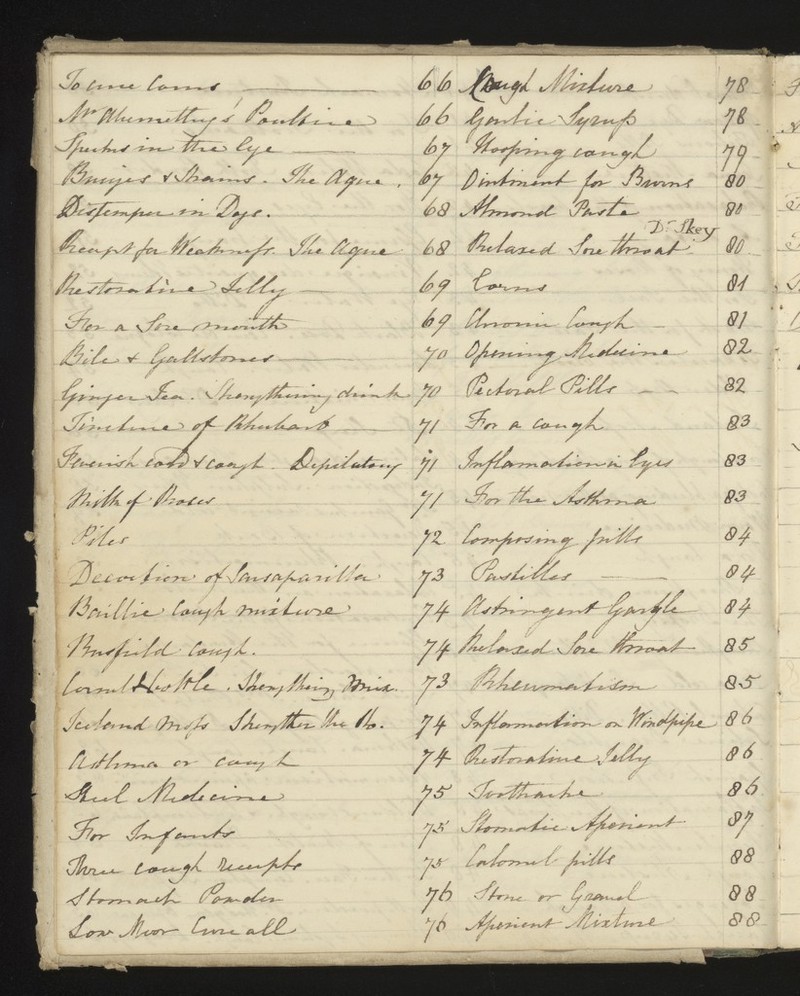 To cure Corns 66
Mr Abernethy's Poultice 66
Specks in the Eye 67
Bruises & Strains. The Ague. 67
Distemper in Dogs. 68
Receipt for Weakness. The Ague 68
Restorative Jelly 69
For a Sore mouth 69
Bile & Gallstones 70
Ginger Tea. Strengthening drink 70
Tincture of Rhubarb 71
Feverish cold & cough. Depilatory 71
Milk of Roses 71
Piles 72
Decoction of Sarsaparilla 73
Baillie Cough mixture 74
Busfield Cough. 74
Strengthening Mix. 73
Iceland Moss Strengthen the 74
Asthma or cough 74
Steel Medicine 75
For Infants 75
Three cough receipts 75
Stomach Powder 76
Low Moor Cure all 76
Cough Mixture 78
Garlic Syrup 78
Hooping cough 79
Ointment for Burns 80
Almond Paste 80
Dr. Skey
Relaxed Sore throat 80
Corns 81
Chronic Cough 81
Opening Medicine 82
Pectoral Pills 82
For a cough 83
Inflamation in Eyes 83
For the Asthma 83
Composing pills 84
Pastilles 84
Astringent Gargle 84
Relaxed Sore throat 85
Rheumatism 85
Inflammation on Windpipe 86
Restorative Jelly 86
Toothache 86
Stomatic Aperient 87
Calomel pills 88
Stone or Gravel 88
Aperient Mixture 88